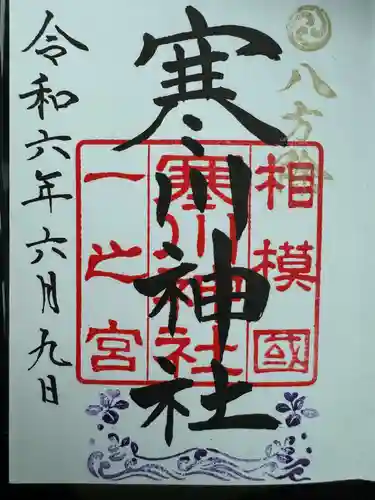 八方除
相模國
寒川神社
一之宮
寒川神社
令和六年六月九日